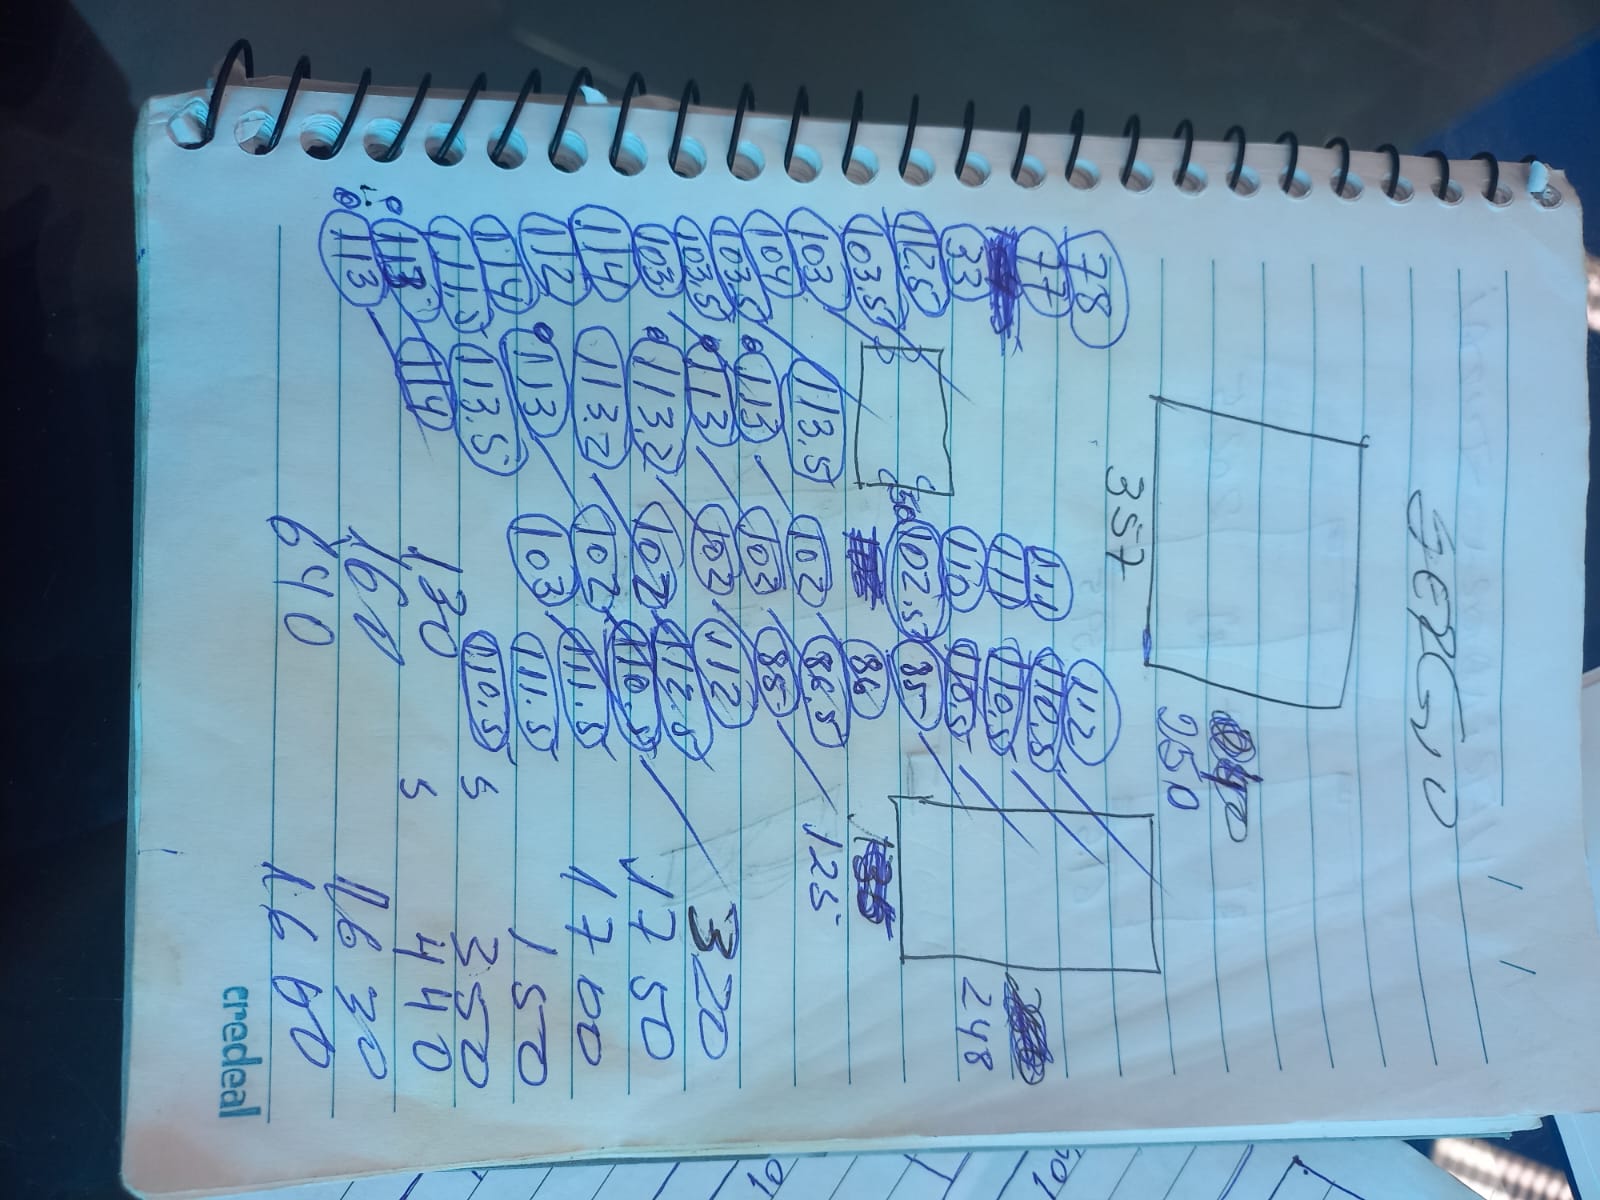 SERGIO / /
250
357
78 112
77 111 110.5
111 110.5
33 110 110.5 248
112.5 50 102.5 85
103.5 86
103 113.5 102 86.5 125
104 113 103 85
103.5 113 102 112 320
103.5 112.5
103 113.2 102 110.5 1750
114 113.2 102 111.5 1700
112 113 103 111.5 150
114 113.5 110.5 5 350
111.5 114 130 5 440
113 160 1630
113 640 1660
credeal